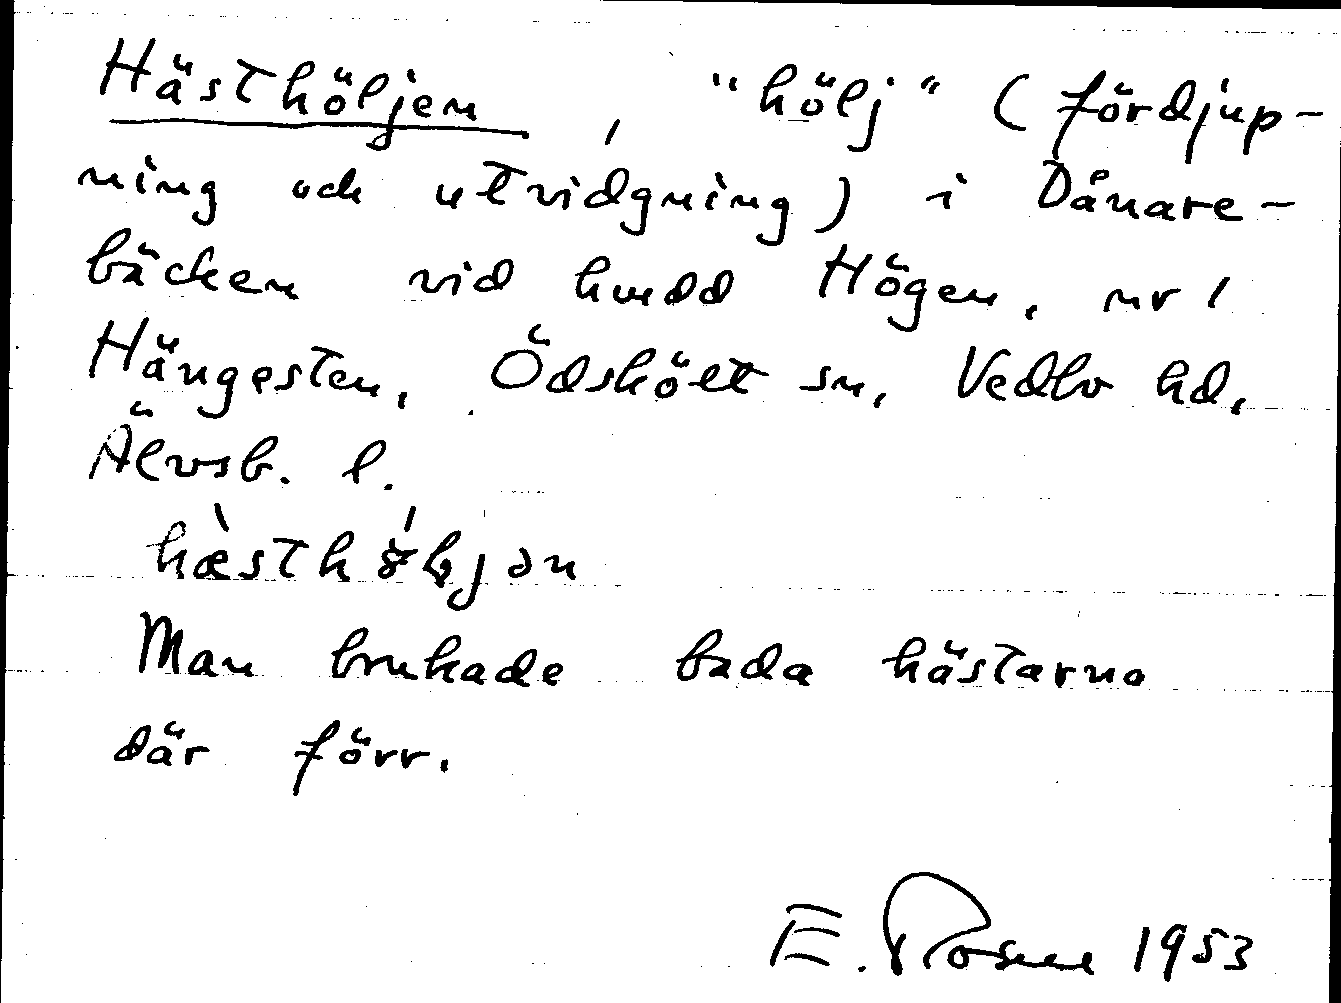 Hästhöljen, "hölj" (fördjup-
ning och utvidgning) i Dånare-
bäcken vid hmdd Högen, nr 1
Hängesten, Ödskölt sn, Vedbo hd,
Älvsb. l.
Man brukade bada hästarna
där förr.
E. Rosell 1953